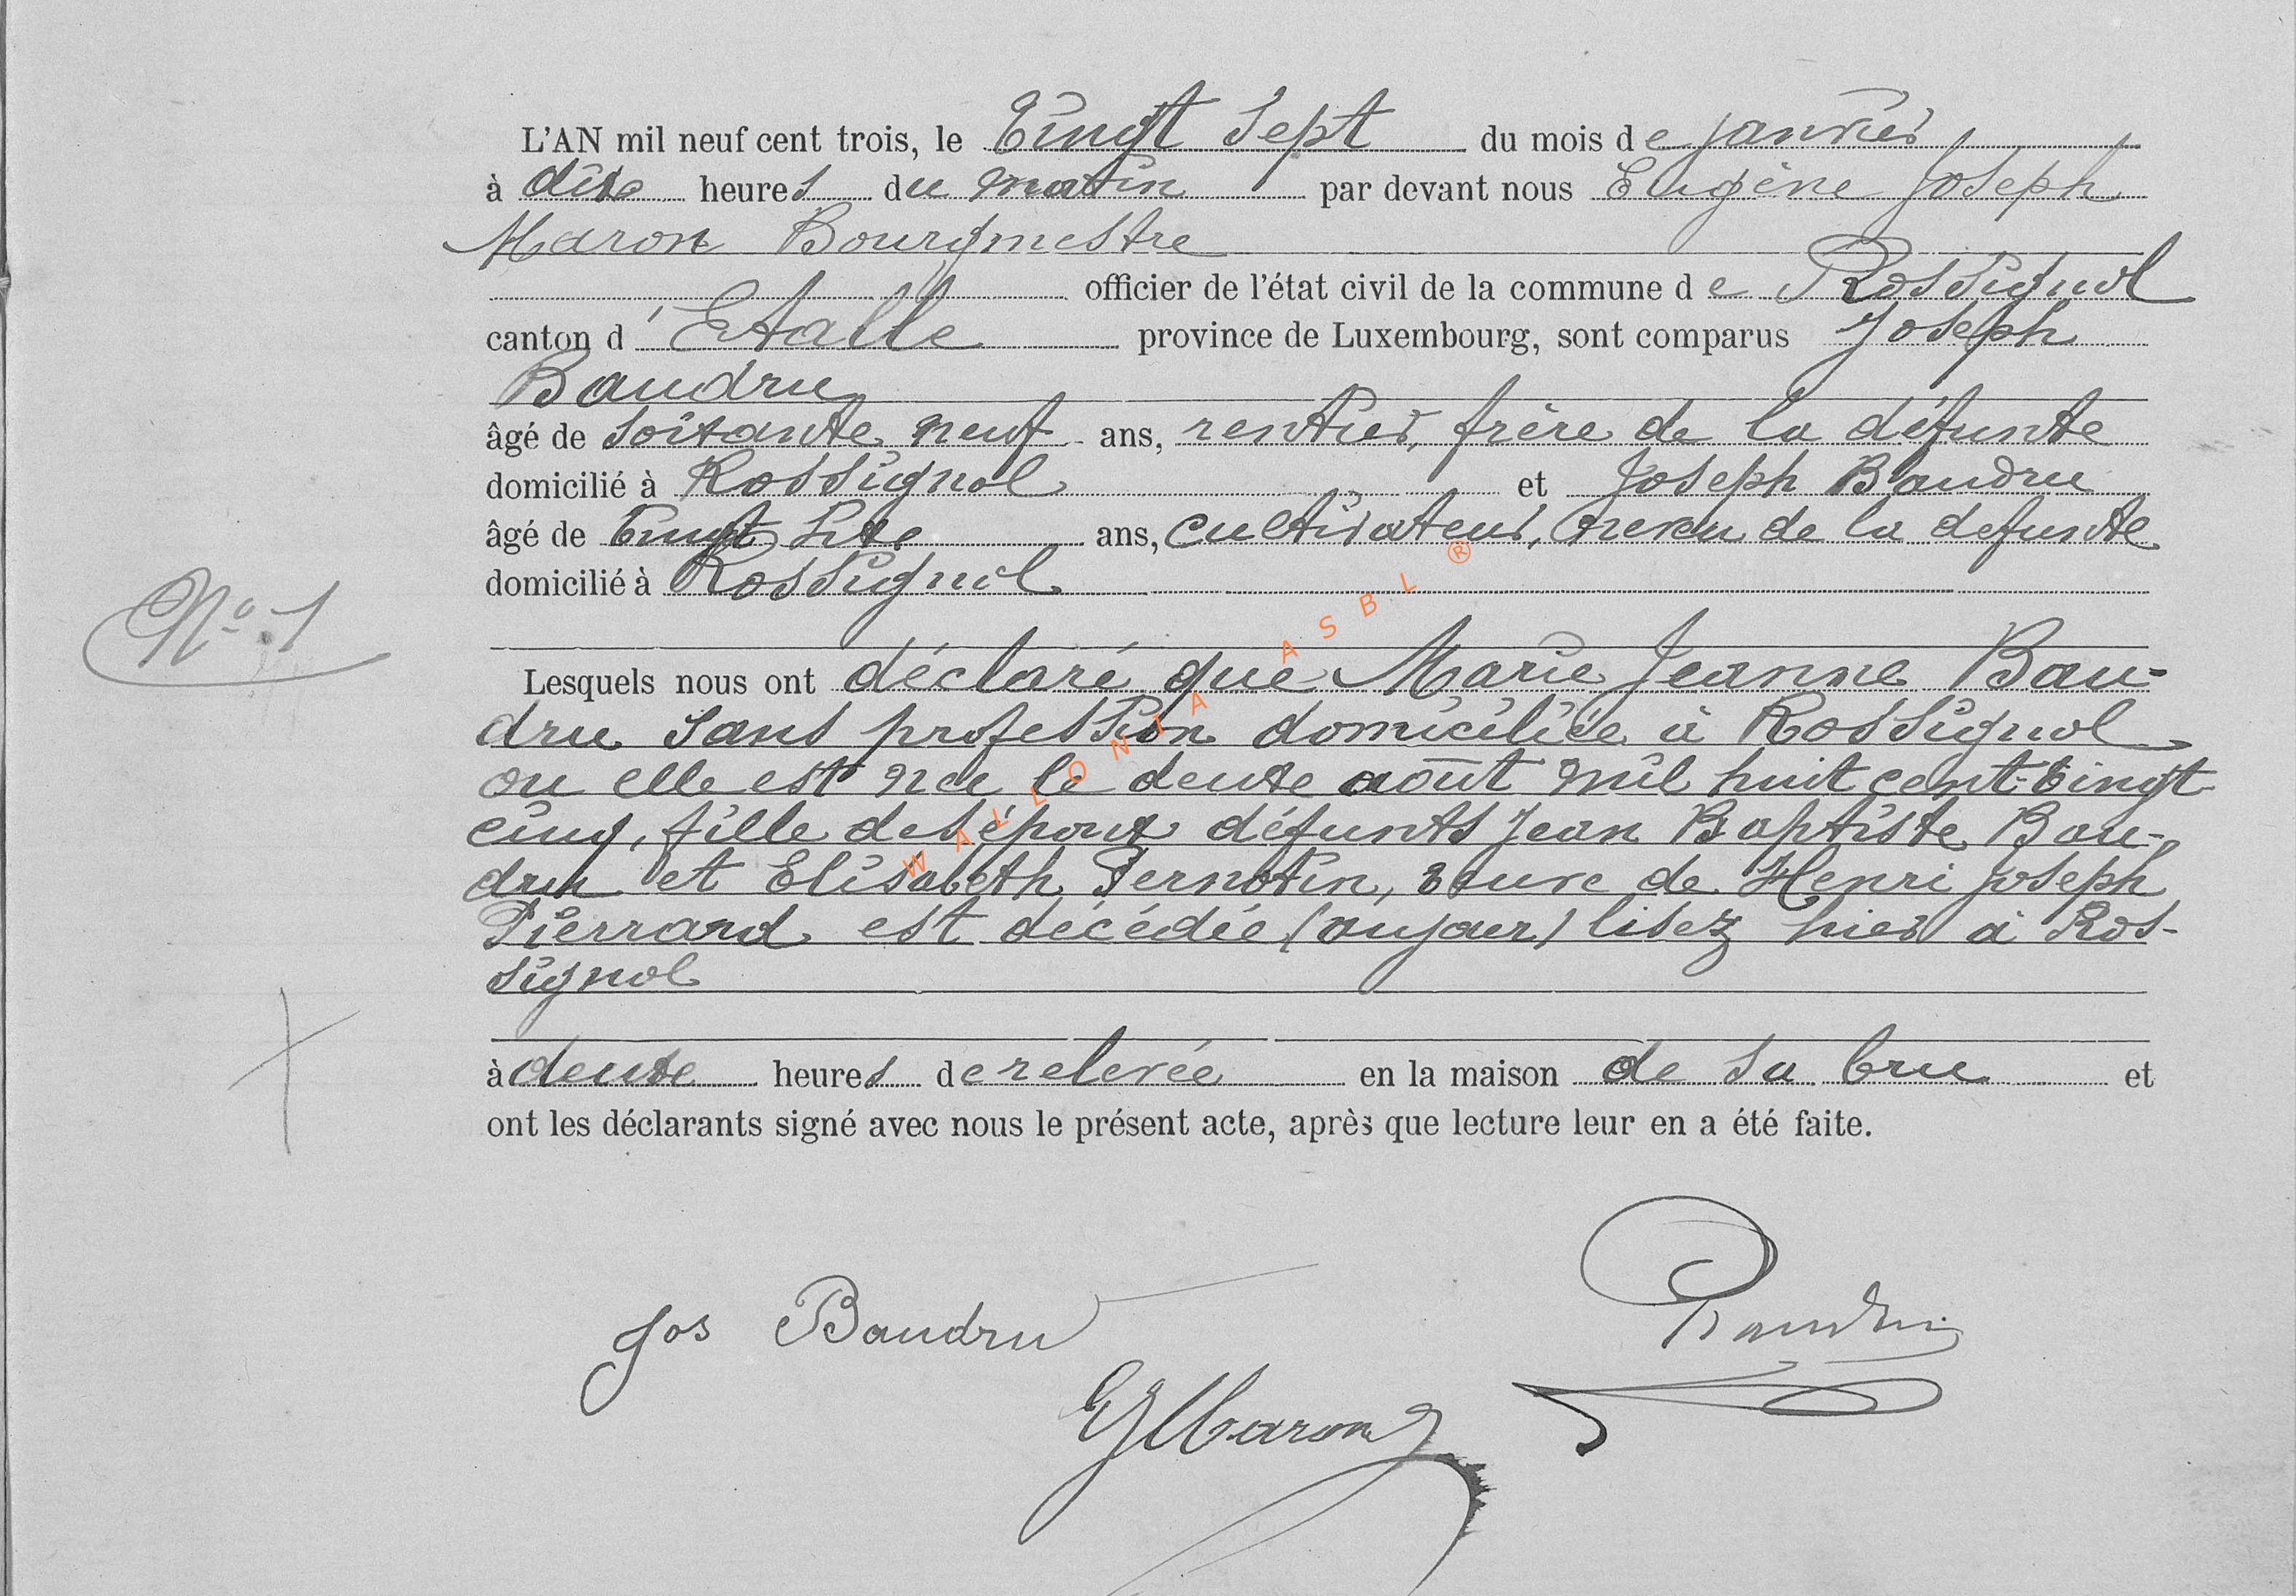 L'AN mil neuf cent trois, le Vingt sept du mois de janvier
à dix heures du matin par devant nous Eugène Joseph
Maron Bourgmestre
officier de l'état civil de la commune de Rossignol
canton d'Etalle province de Luxembourg, sont comparus Joseph
Baudru
âgé de soixante neuf ans, rentier, frère de la défunte
domicilié à Rossignol et Joseph Baudru
âgé de vingt six ans, cultivateur, neveu de la defunte
domicilié à Rossignol
Nº 1
Lesquels nous ont déclaré que Marie Jeanne Bau-
dru sans profession domiciliée à Rossignol
ou elle est née le deux août mil huit cent vingt
cinq, fille des époux défunts Jean Baptiste Bau-
dru et Elisabeth Pernotin, veuve de Henri Joseph
Pierrard est décédée (aujour) lisez hier à Ros-
signol
à deux heures de relevée en la maison de sa bru et
ont les déclarants signé avec nous le présent acte, après que lecture leur en a été faite.
Jos Baudru
Baudru
EJMaron
WALLONIA ASBL ®